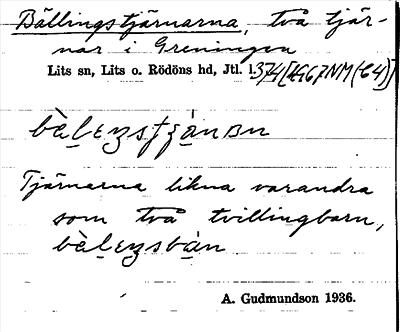 Bällingstjärnarna, två tjär-
nar i Greningen
Lits sn, Lits o. Rödöns hd, Jtl. 1.374
Tjärnarna likna varandra
som två tvillingbarn,
A. Gudmundson 1936.